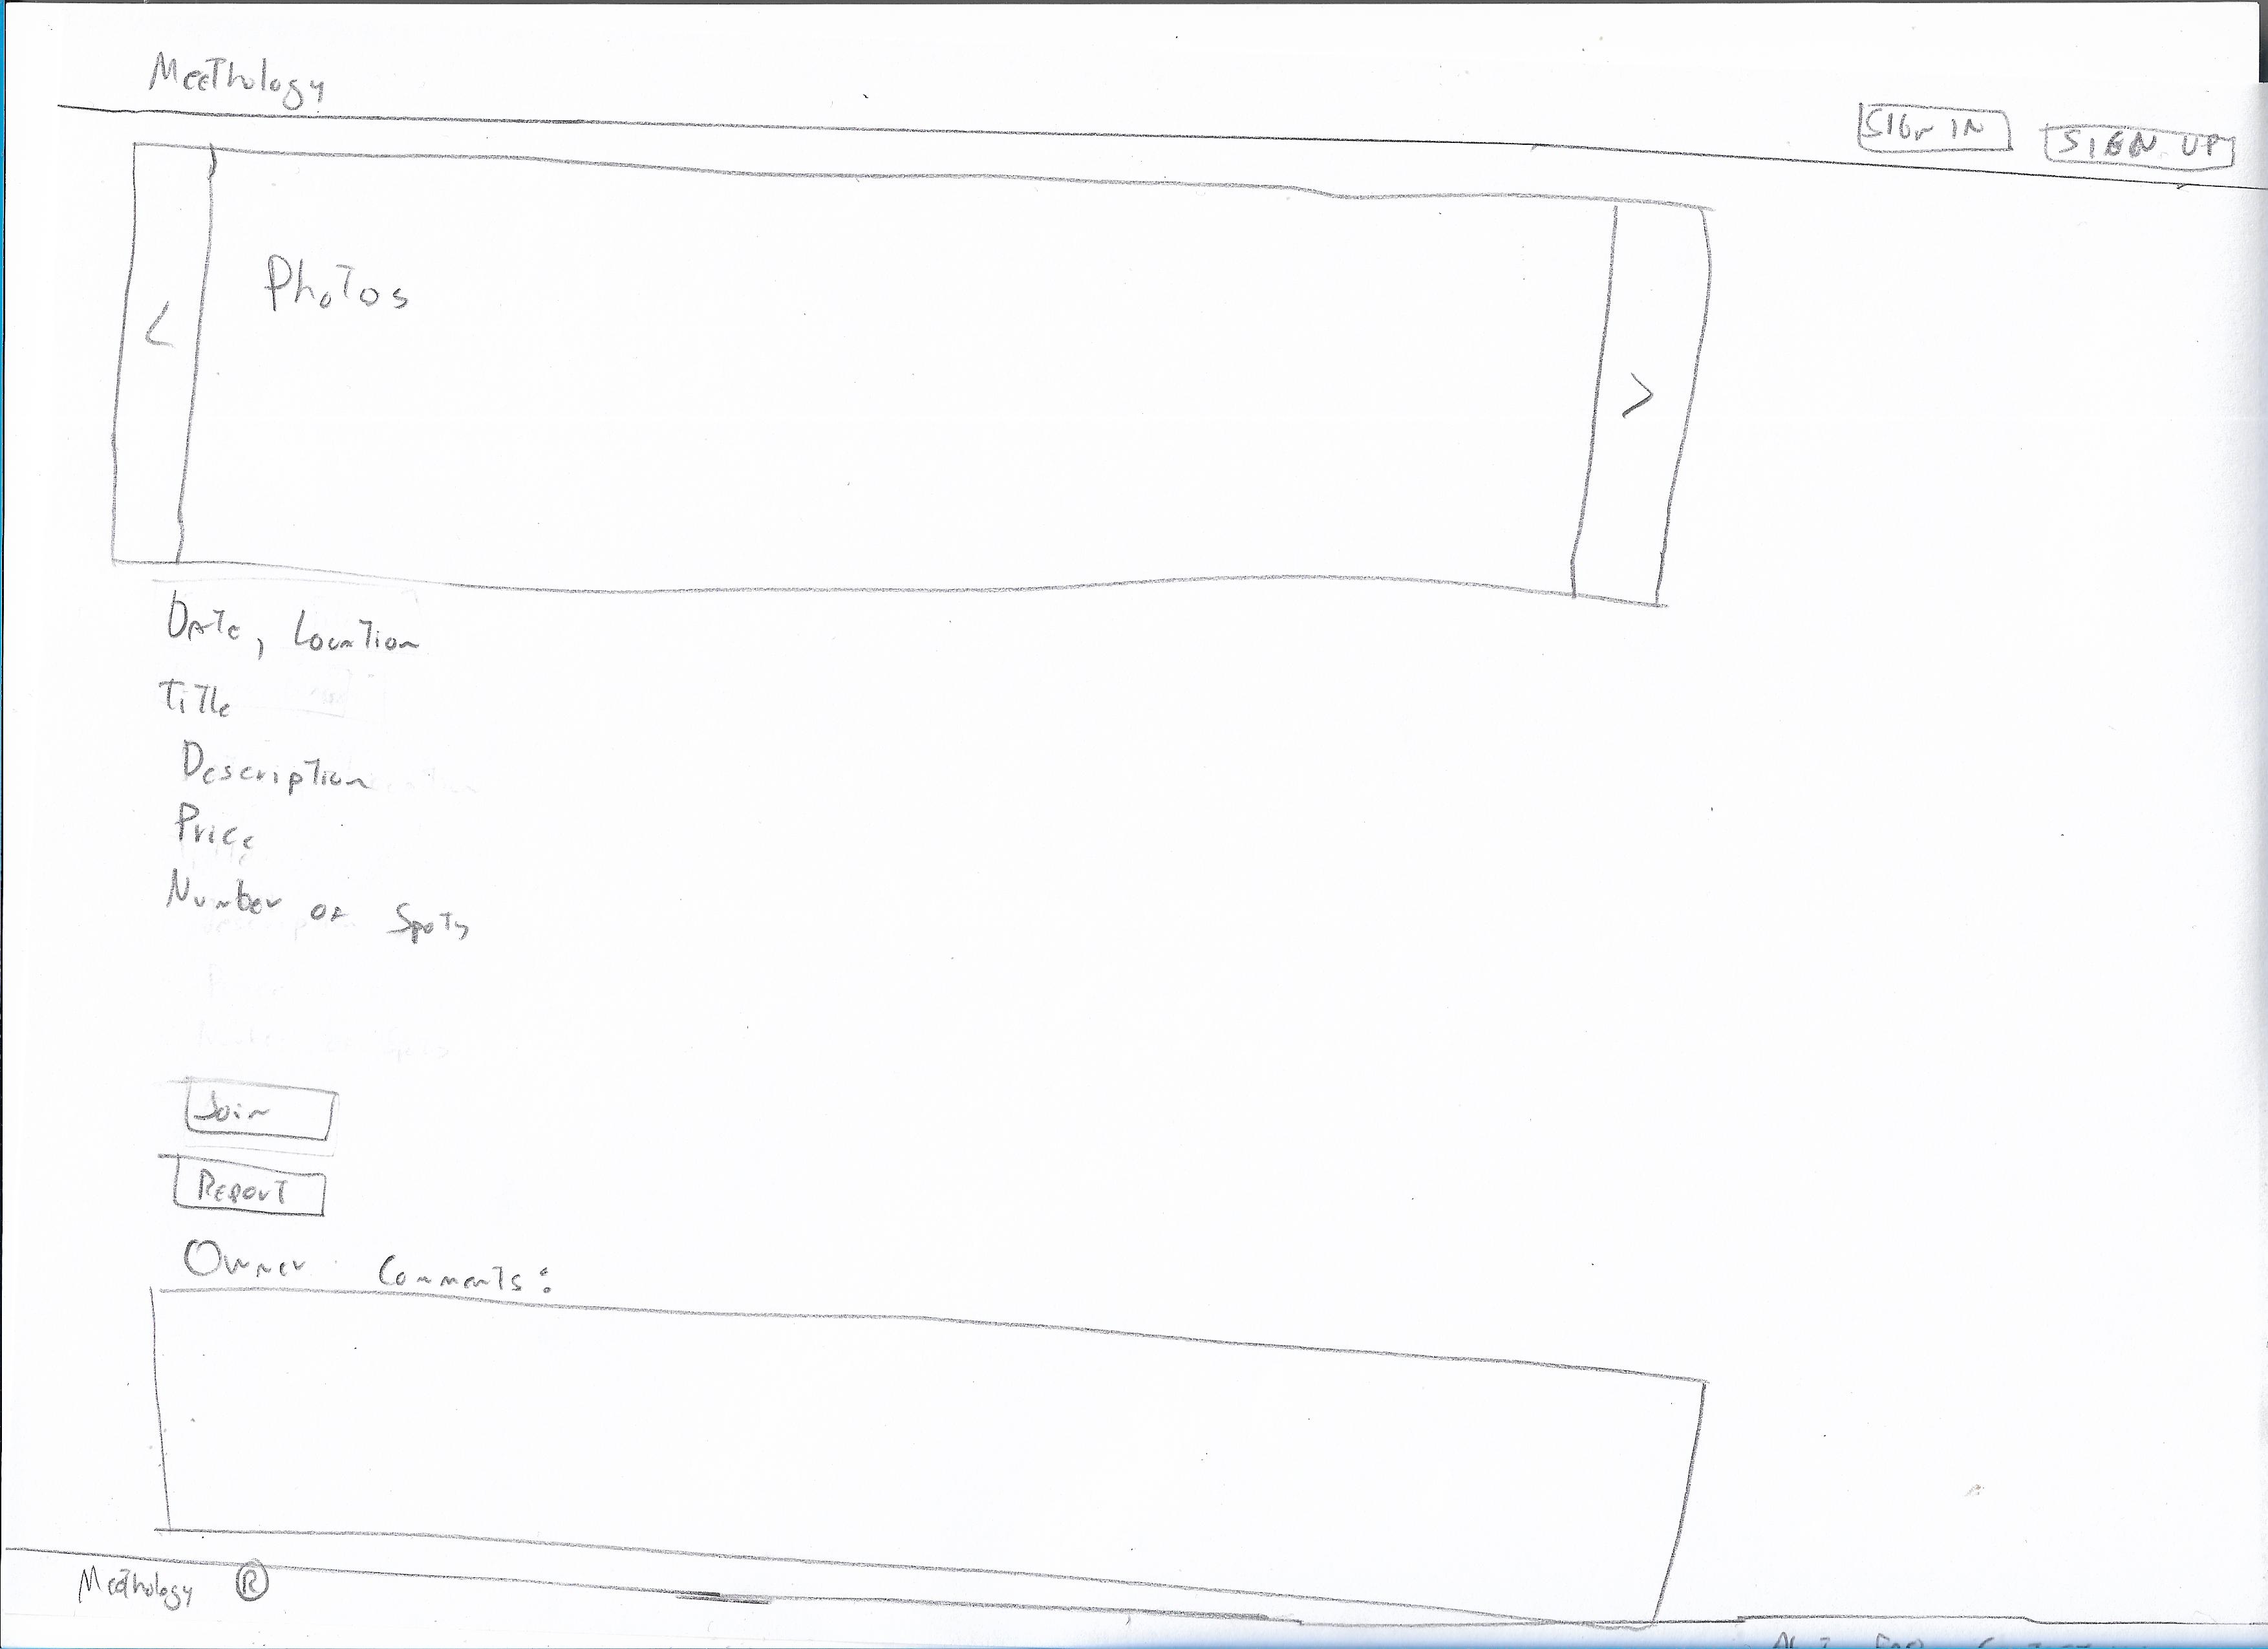 Meethology
SIGN IN
SIGN UP
<
Photos
>
Date, Location
Title
Description
Price
Number of Spots
Join
Report
Owner Comments:
Meethology ®